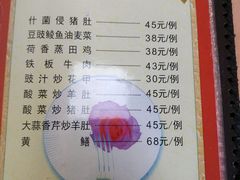 什菌侵猪肚 45元/例
豆豉鲮鱼油麦菜 38元/例
荷香蒸田鸡 38元/例
铁板牛肉 43元/例
豉汁炒花甲 30元/例
酸菜炒羊肚 45元/例
酸菜炒猪肚 45元/例
大蒜香芹炒羊肚 45元/例
黄鳝 68元/例